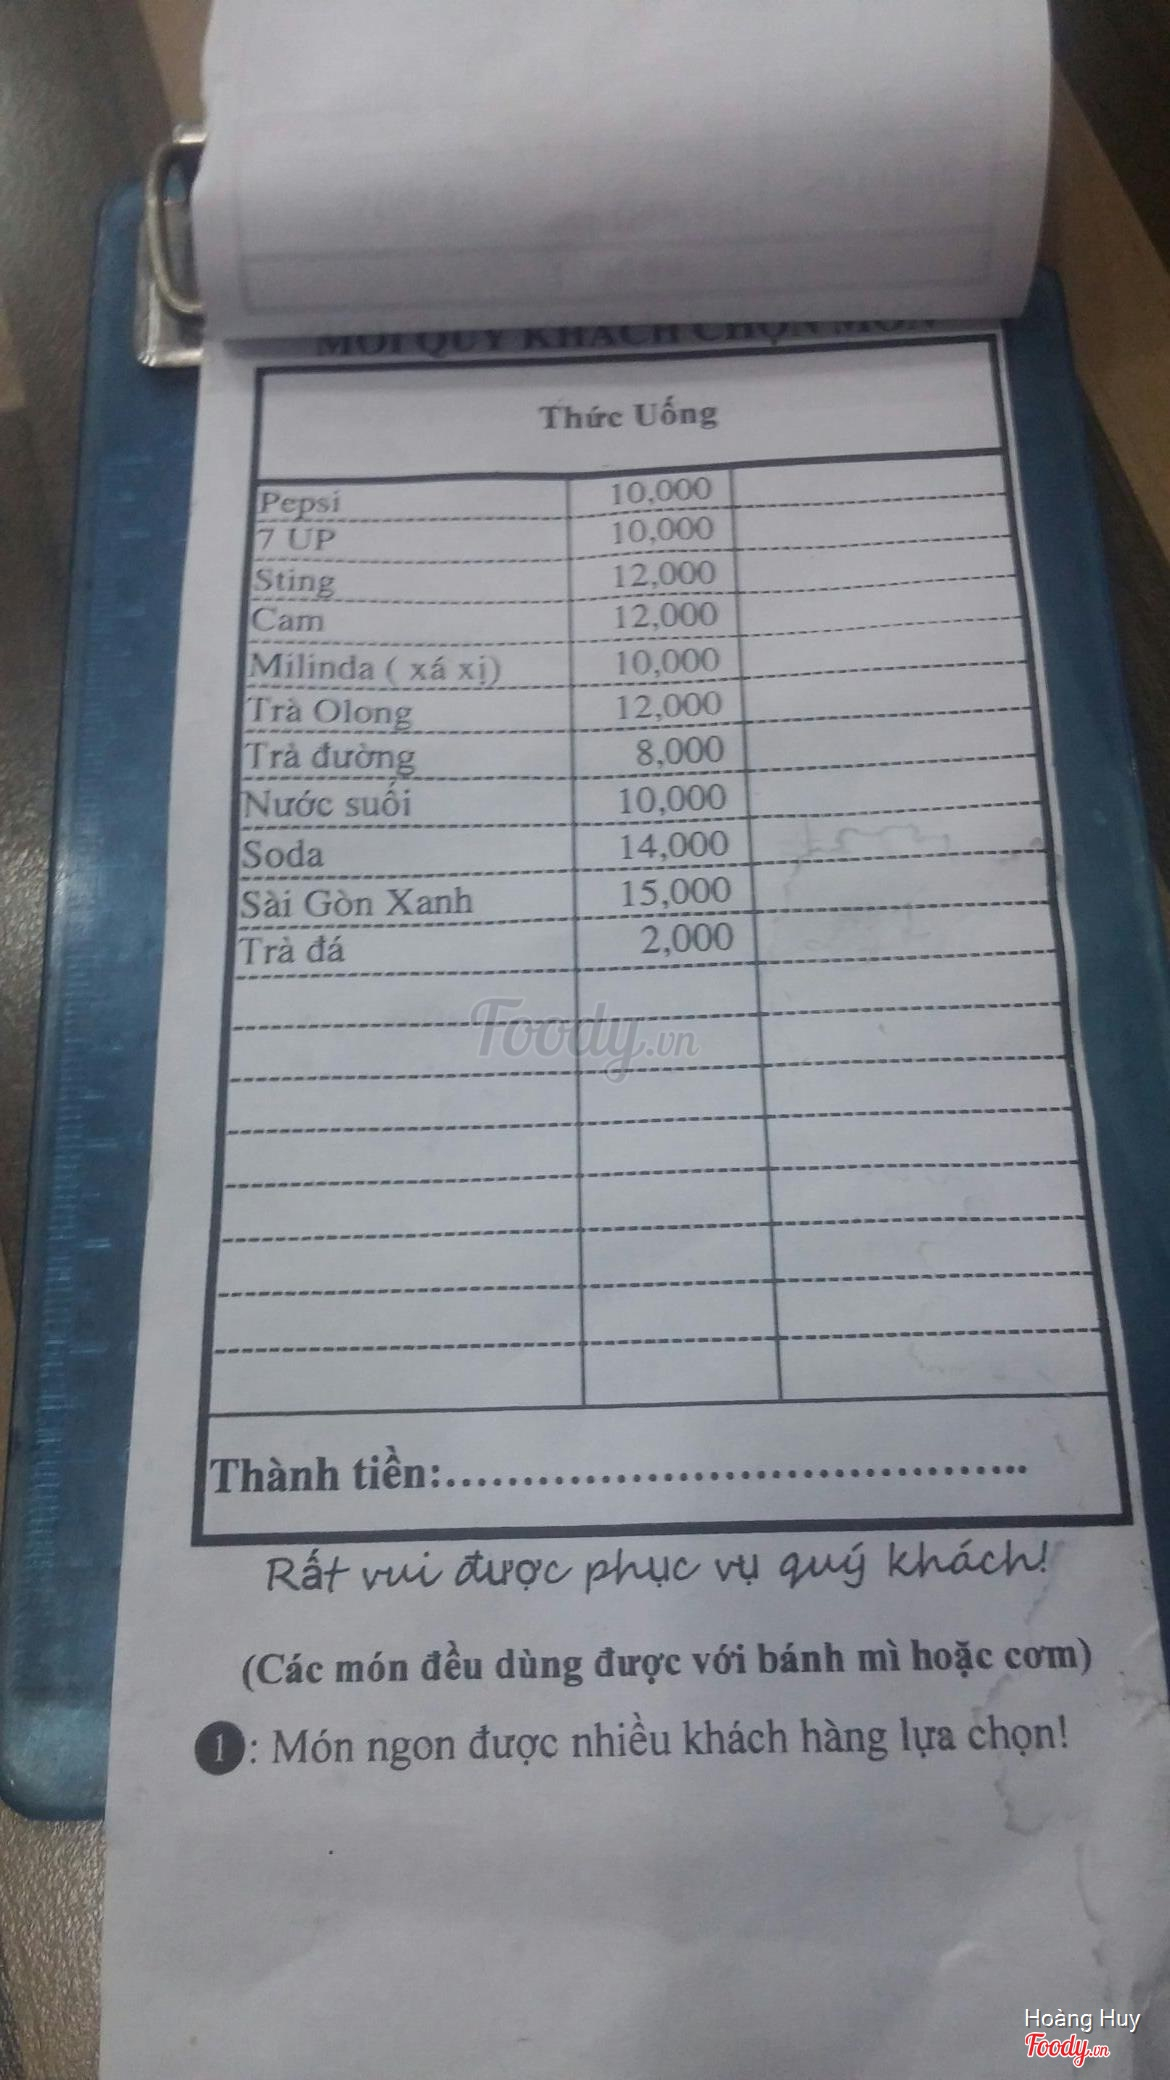 MỜI QUÝ KHÁCH CHỌN MÓN
Thức Uống
Pepsi 10,000
7 UP 10,000
Sting 12,000
Cam 12,000
Milinda ( xá xị) 10,000
Trà Olong 12,000
Trà đường 8,000
Nước suối 10,000
Soda 14,000
Sài Gòn Xanh 15,000
Trà đá 2,000
Foody.vn
Thành tiền:.............................................
Rất vui được phục vụ quý khách!
(Các món đều dùng được với bánh mì hoặc cơm)
1: Món ngon được nhiều khách hàng lựa chọn!
Hoàng Huy
Foody.vn